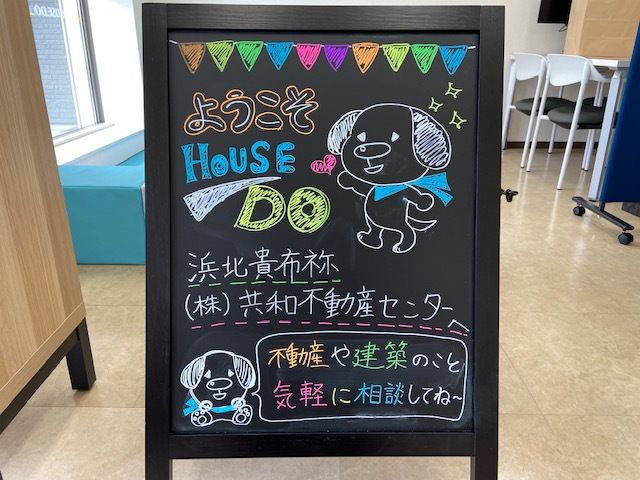 ようこそ
HOUSE
DO
浜北貴布祢
(株)共和不動産センターへ
不動産や建築のこと
気軽に相談してね~